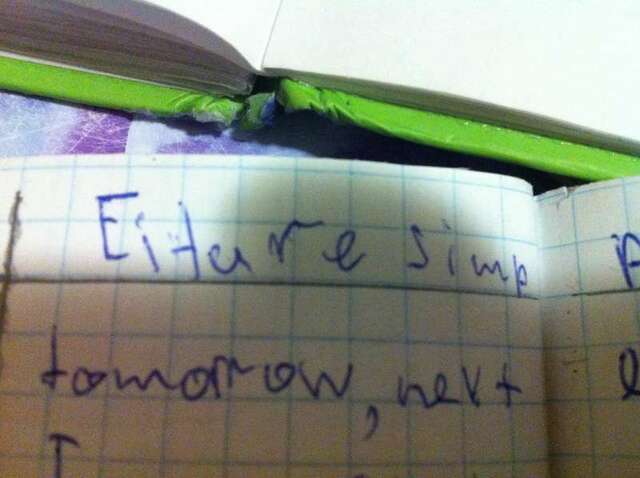 Eiture simp
tomorrow, next
I
P
e